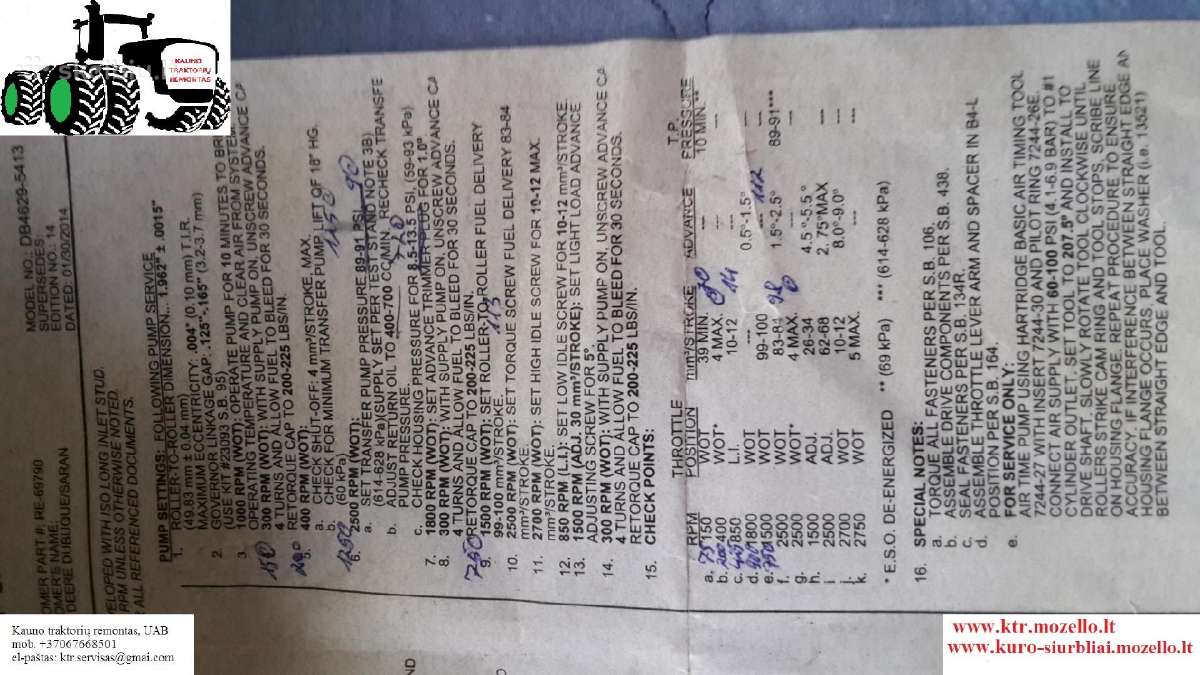 KAUNO
TRAKTORIŲ
REMONTAS
MODEL NO.: DB4629-5413
SUPERSEDES:
EDITION NO.: 14
DATED: 01/30/2014
OMER PART #: RE-69790
OMER'S NAME:
DEERE DUBUQUE/SARAN
VELOPED WITH ISO LONG INLET STUD.
RPM UNLESS OTHERWISE NOTED.
ALL REFERENCED DOCUMENTS.
PUMP SETTINGS: FOLLOWING PUMP SERVICE
1. ROLLER-TO-ROLLER DIMENSION... 1.962" ± .0015"
(49.83 mm ± 0.04 mm)
MAXIMUM ECCENTRICITY. .004" (0.10 mm) T.I.R.
GOVERNOR LINKAGE GAP. .125"-.165" (3.2-3.7 mm)
(USE KIT #23093 S.B. 95)
2. 1000 RPM (WOT): OPERATE PUMP FOR 10 MINUTES TO BRI
OPERATING TEMPERATURE AND CLEAR AIR FROM SYSTEM
3. 300 RPM (WOT): WITH SUPPLY PUMP ON, UNSCREW ADVANCE CA
4 TURNS AND ALLOW FUEL TO BLEED FOR 30 SECONDS.
RETORQUE CAP TO 200-225 LBS/IN.
150
5. 400 RPM (WOT):
200
a. CHECK SHUT-OFF: 4 mm³/STROKE MAX.
b. CHECK FOR MINIMUM TRANSFER PUMP LIFT OF 18" HG.
(60 kPa)
6. 2500 RPM (WOT):
1250
1250 90
a SET TRANSFER PUMP PRESSURE 89-91 PSI
(614-628 kPa)(SUPPLY SET PER TEST STAND NOTE 3B)
b ADJUST RETURN OIL TO 400-700 CC/MIN. RECHECK TRANSFE
PUMP PRESSURE.
c. CHECK HOUSING PRESSURE FOR 8.5-13.5 PSI, (59-93 kPa)
7. 1800 RPM (WOT): SET ADVANCE TRIMMER PLUG FOR 1.0°
8. 300 RPM (WOT): WITH SUPPLY PUMP ON, UNSCREW ADVANCE CA
4 TURNS AND ALLOW FUEL TO BLEED FOR 30 SECONDS.
RETORQUE CAP TO 200-225 LBS/IN.
750
9. 1500 RPM (WOT): SET ROLLER-TO-ROLLER FUEL DELIVERY
99-100 mm³/STROKE. 113
10. 2500 RPM (WOT): SET TORQUE SCREW FUEL DELIVERY 83-84
mm³/STROKE.
11. 2700 RPM (WOT): SET HIGH IDLE SCREW FOR 10-12 MAX.
mm³/STROKE.
12. 850 RPM (L.I.): SET LOW IDLE SCREW FOR 10-12 mm³/STROKE
13. 1500 RPM (ADJ. 30 mm³/STROKE): SET LIGHT LOAD ADVANCE
ADJUSTING SCREW FOR 5°
14. 300 RPM (WOT): WITH SUPPLY PUMP ON, UNSCREW ADVANCE CA
4 TURNS AND ALLOW FUEL TO BLEED FOR 30 SECONDS.
RETORQUE CAP TO 200-225 LBS/IN.
15. CHECK POINTS:
RPM THROTTLE POSITION mm³/STROKE ADVANCE T.P. PRESSURE
a. 75 150 WOT 39 MIN. --- 10 MIN.**
b. 200 400 WOT* 4 MAX. --- ---
c. 850 L.I. 10-12 14 --- ---
d. 1800 WOT --- 0.5°-1.5° ---
e. 750 1500 WOT 99-100 --- 112 ---
f. 2500 WOT 83-84 98 1.5°-2.5° 89-91***
g. 2500 WOT* 4 MAX. 0 --- ---
h. 1500 ADJ. 26-34 4.5°-5.5° ---
i 2500 ADJ. 62-68 2.75°MAX ---
j. 2700 WOT 10-12 8.0°-9.0° ---
k. 2750 WOT 5 MAX. --- ---
* E.S.O. DE-ENERGIZED ** (69 kPa) *** (614-628 kPa)
16. SPECIAL NOTES:
a. TORQUE ALL FASTENERS PER S.B. 106.
b. ASSEMBLE DRIVE COMPONENTS PER S.B. 438.
c. SEAL FASTENERS PER S.B. 134R.
d. ASSEMBLE THROTTLE LEVER ARM AND SPACER IN B4-L
POSITION PER S.B. 164.
e. FOR SERVICE ONLY:
AIR TIME PUMP USING HARTRIDGE BASIC AIR TIMING TOOL
7244-27 WITH INSERT 7244-30 AND PILOT RING 7244-26E.
CONNECT AIR SUPPLY WITH 60-100 PSI (4.1-6.9 BAR) TO #1
CYLINDER OUTLET. SET TOOL TO 207.5° AND INSTALL TO
DRIVE SHAFT. SLOWLY ROTATE TOOL CLOCKWISE UNTIL
ROLLERS STRIKE CAM RING AND TOOL STOPS. SCRIBE LINE
ON HOUSING FLANGE. REPEAT PROCEDURE TO ENSURE
ACCURACY. IF INTERFERENCE BETWEEN STRAIGHT EDGE AN
HOUSING FLANGE OCCURS, PLACE WASHER (i.e. 13521)
BETWEEN STRAIGHT EDGE AND TOOL.
ND
Kauno traktorių remontas, UAB
mob. +37067668501
el-paštas: ktr.servisas@gmai.com
www.ktr.mozello.lt
www.kuro-siurbliai.mozello.lt